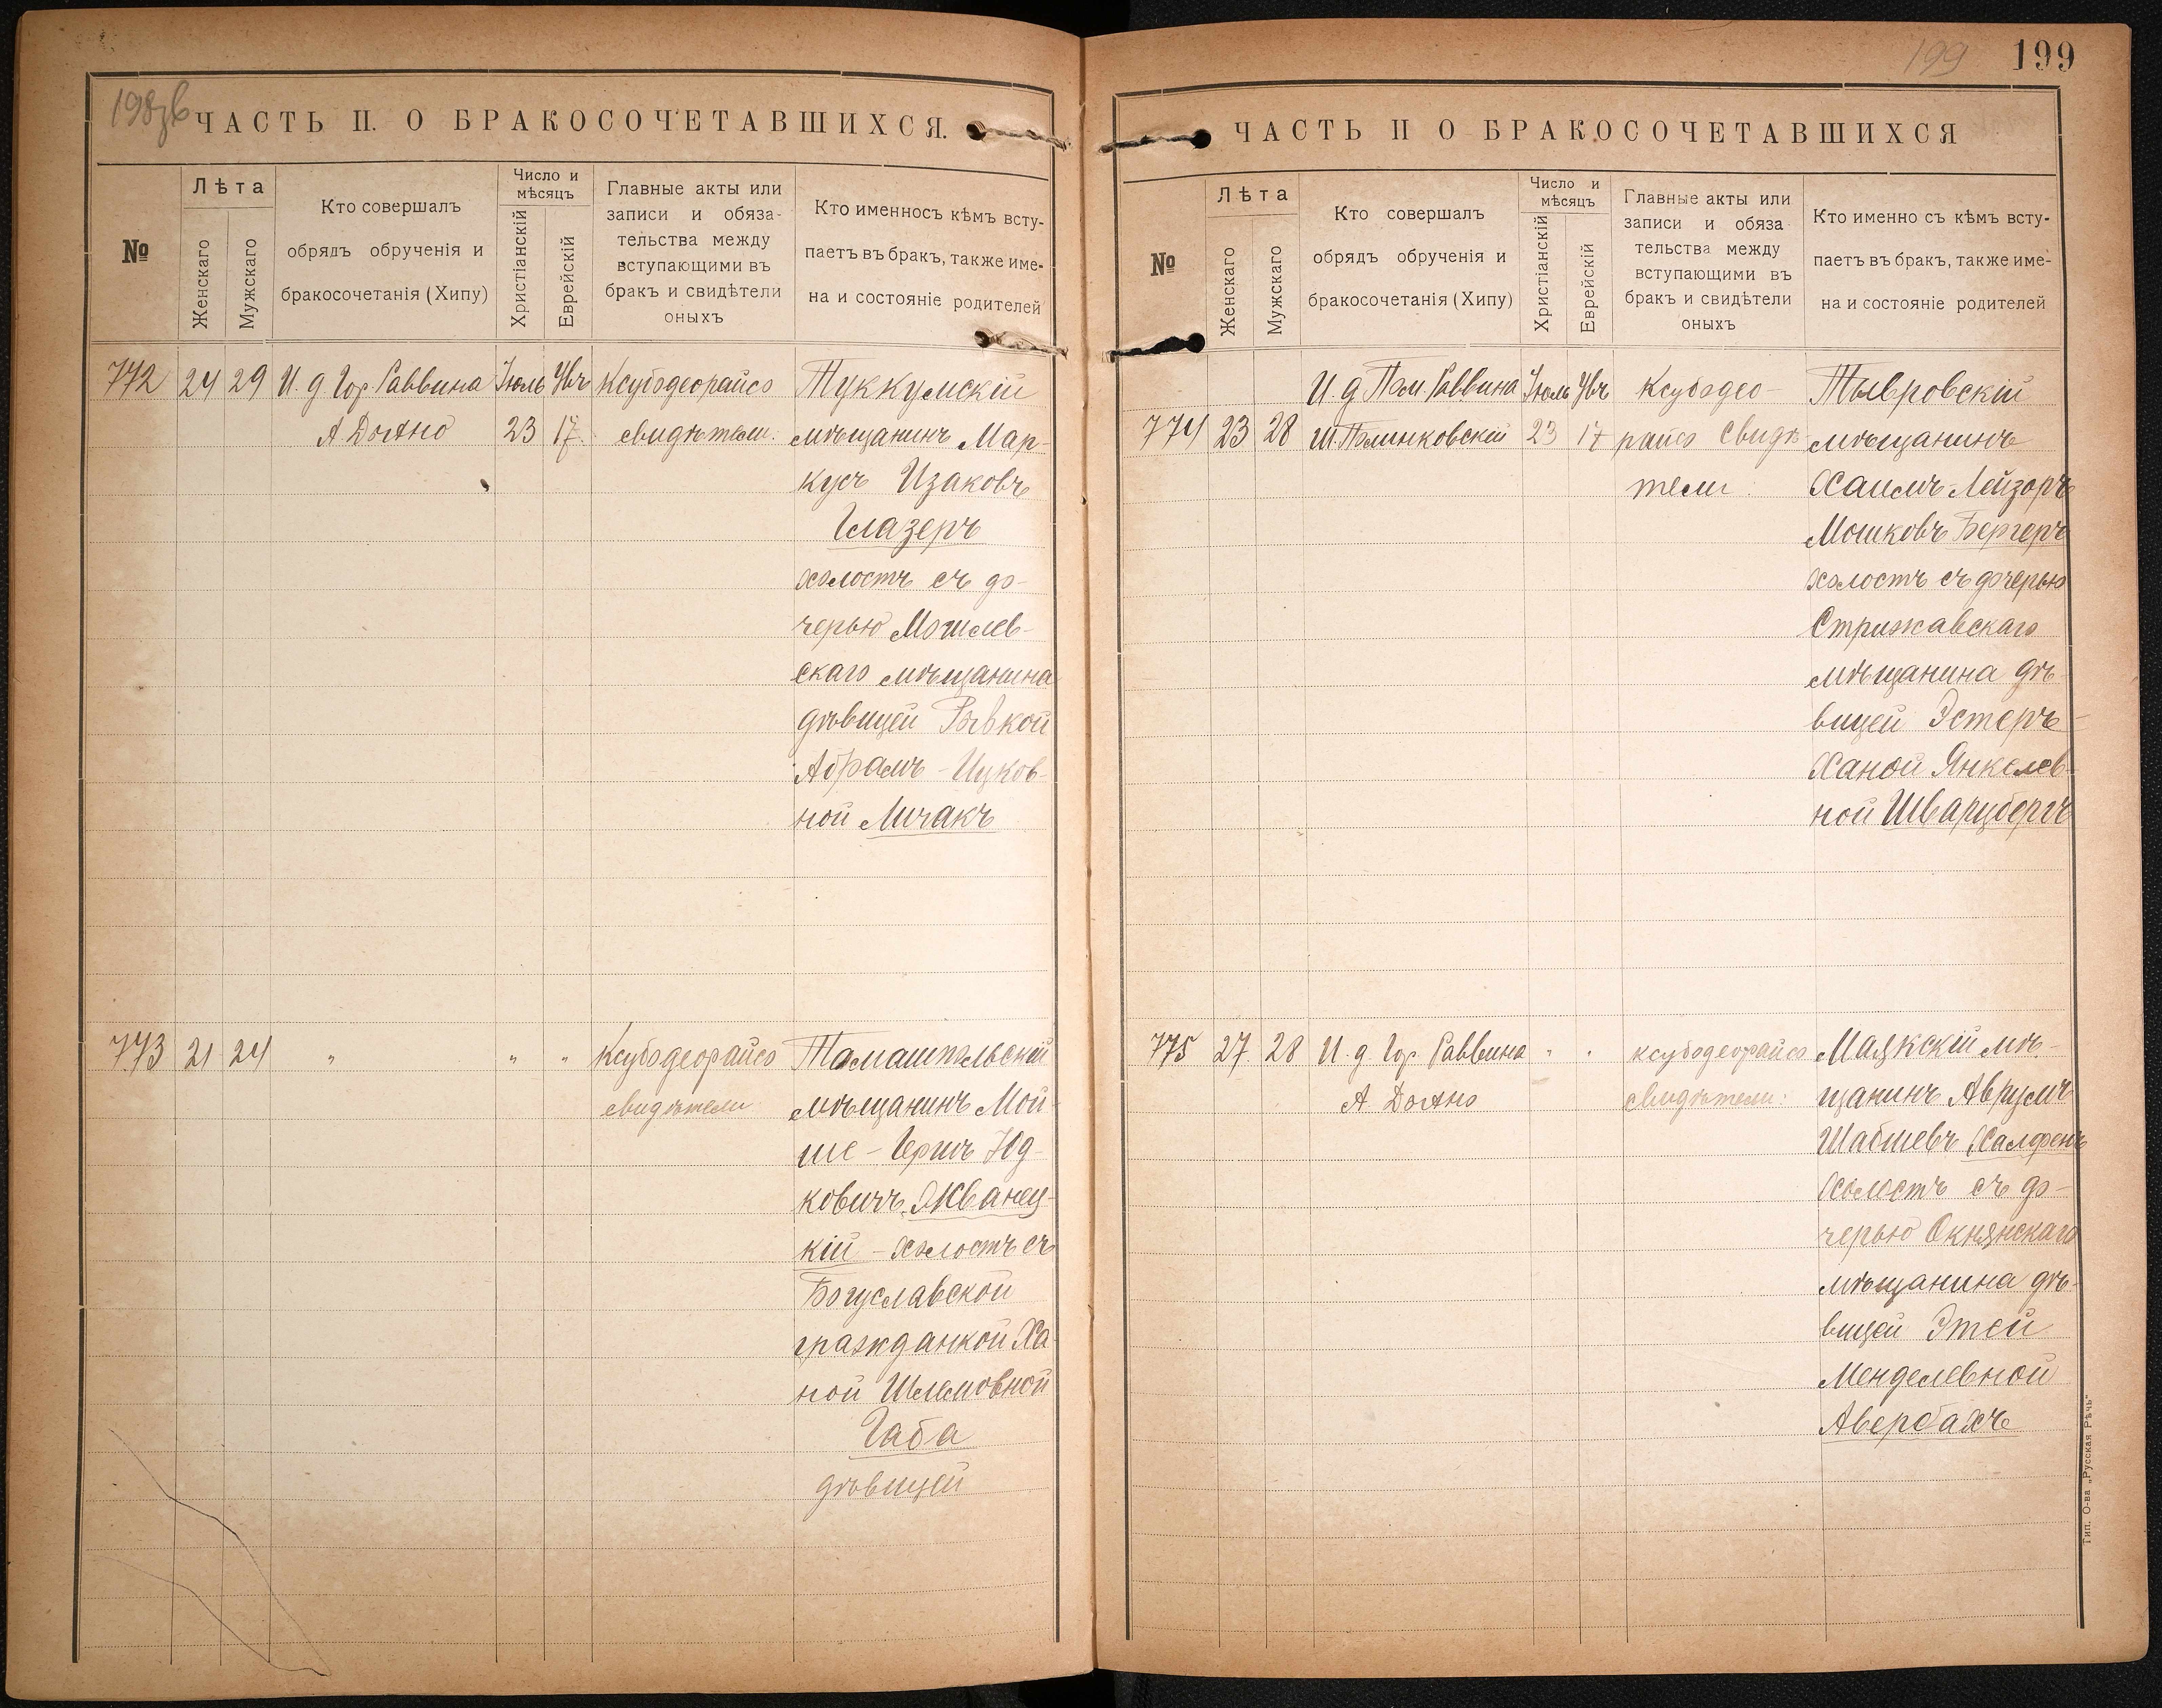 198зв
ЧАСТЬ II. О БРАКОСОЧЕТАВШИХСЯ.
№
Лѣта
Женскаго
Мужскаго
Кто совершалъ
обрядъ обрученія и
бракосочетанія (Хипу)
Число и
мѣсяцъ
Христіанскій
Еврейскій
Главные акты или
записи и обяза-
тельства между
вступающими въ
бракъ и свидѣтели
оныхъ
Кто именносъ кѣмъ всту-
паетъ въ бракъ, также име-
на и состояніе родителей
772 24 29 И. д Гор. Раввина Іюль Увъ Ксубодеорайсо Туккумскій
А Дыхно 23 17. свидѣтели. мѣщанинъ Мар-
кусъ Изаковъ
Глазеръ
холостъ съ до-
черью Могилев-
скаго мѣщанина
дѣвицей Ривкой
Абрамъ-Ицков-
ной Личакъ
773 21 24 " " " Ксубодеорайсо Томашпольскій
свидѣтели мѣщанинъ Мой-
ше-Гершъ Юд-
ковичъ Жванец-
кій - холостъ съ
Богуславской
гражданкой Ха-
ной Шлемовной
Габа
дѣвицей
199 199
ЧАСТЬ II О БРАКОСОЧЕТАВШИХСЯ
№
Лѣта
Женскаго
Мужскаго
Кто совершалъ
обрядъ обрученія и
бракосочетанія (Хипу)
Число и
мѣсяцъ
Христіанскій
Еврейскій
Главные акты или
записи и обяза
тельства между
вступающими въ
бракъ и свидѣтели
оныхъ
Кто именно съ кѣмъ всту-
паетъ въ бракъ, также име-
на и состояніе родителей
И. д Пом. Раввина Іюль Увъ Ксубодео- Тывровскій
774 23 28 Ш. Полинковскій 23 17 райсо Свидѣ мѣщанинъ
тели. Хаимъ-Лейзоръ
Мошковъ Бергеръ
холостъ съ дочерью
Стрижавскаго
мѣщанина дѣ-
вицей Эстеръ-
Ханой Янкелев-
ной Шварцбергъ
775 27. 28 И. д. Гор Раввина " " ксубодеорайсо Маякскій мѣ-
А Дыхно свидѣтели: щанинъ Аврумъ
Шабшевъ Халфенъ
холостъ съ до-
черью Окнянскаго
мѣщанина дѣ-
вицей Этей
Менделевной
Авербахъ
Тип. О-ва „Русская Рѣчь“